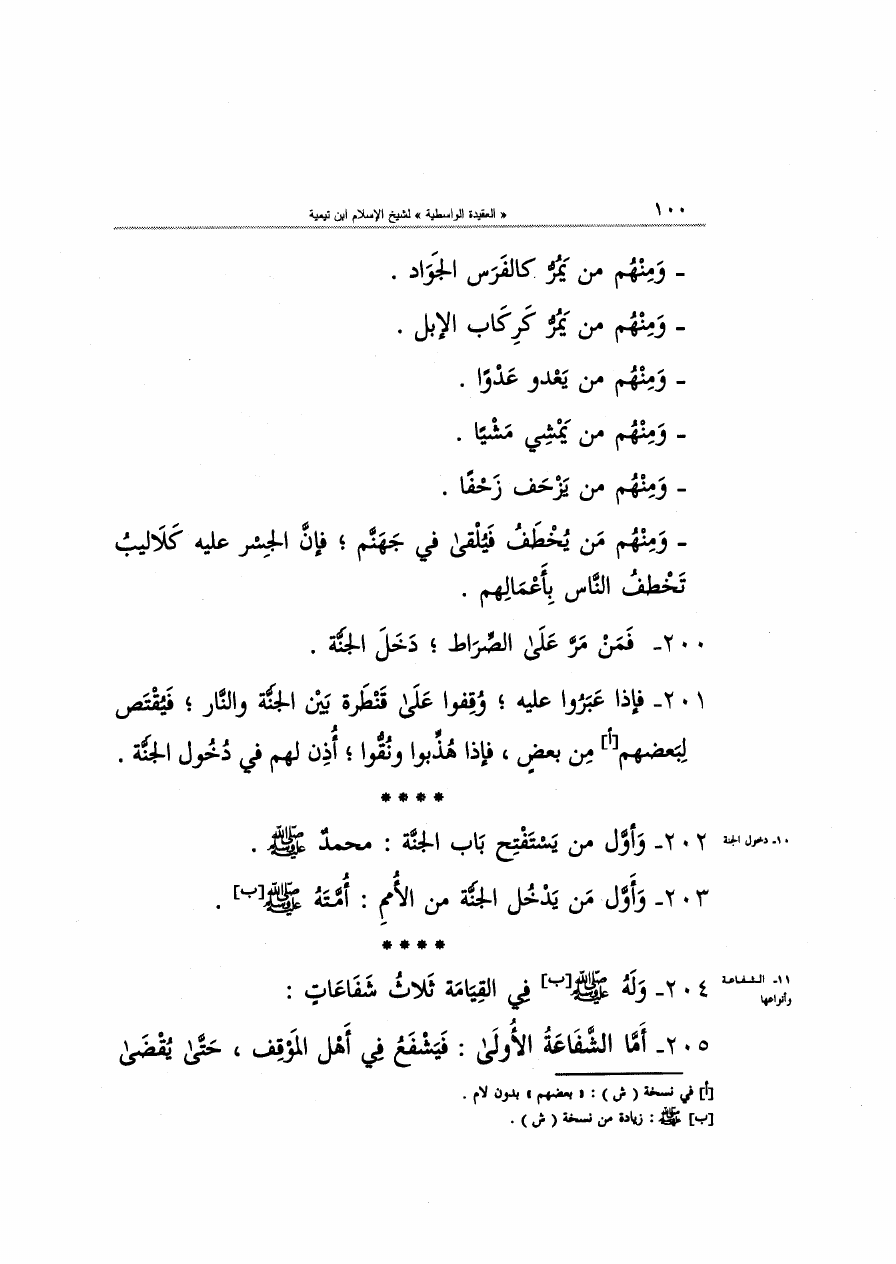 ١٠٠ « العقيدة الواسطية » لشيخ الإسلام ابن تيمية
ـ وَمِنْهُم من يَمُرُّ كالفَرَس الجَوَاد .
ـ وَمِنْهُم من يَمُرُّ كَرِكَاب الإبل .
ـ وَمِنْهُم من يَعْدو عَدْوًا .
ـ وَمِنْهُم من يَمْشِي مَشْيًا .
ـ وَمِنْهُم من يَزْحَف زَحْفًا .
ـ وَمِنْهُم مَن يُخْطَفُ فَيُلْقىٰ في جَهَنَّم ؛ فإنَّ الجِسْر عليه كَلَاليبُ
تَخْطفُ النَّاس بِأَعْمَالِهم .
٢٠٠ـ فَمَنْ مَرَّ عَلَىٰ الصِّرَاط ؛ دَخَلَ الجَنَّة .
٢٠١ـ فإذا عَبَرُوا عليه ؛ وُقِفوا عَلَىٰ قَنْطَرة بَيْن الجَنَّة والنَّار ؛ فَيُقْتَص
لِبَعضهم[أ] مِن بعضٍ ، فإذا هُذِّبوا ونُقُّوا ؛ أُذِن لهم في دُخُول الجَنَّة .
****
١٠ـ دخول الجنة
٢٠٢ـ وَأوَّل من يَسْتَفْتِح بَاب الجَنَّة : محمدٌ ﷺ .
٢٠٣ـ وَأَوَّل مَن يَدْخُل الجَنَّة من الأُممِ : أُمَّتَهُ ﷺ[ب] .
****
١١ـ الشفاعة
وأنواعها
٢٠٤ـ وَلَهُ ﷺ[ب] فِي القِيَامَة ثَلاثُ شَفَاعَاتٍ :
٢٠٥ـ أَمَّا الشَّفَاعَةُ الأُولَىٰ : فَيَشْفَعُ فِي أَهْل المَوْقِف ، حَتَّىٰ يُقْضَىٰ
[أ] في نسخة ( ش ) : « بعضهم » بدون لام .
[ب] ﷺ : زيادة من نسخة ( ش ) .